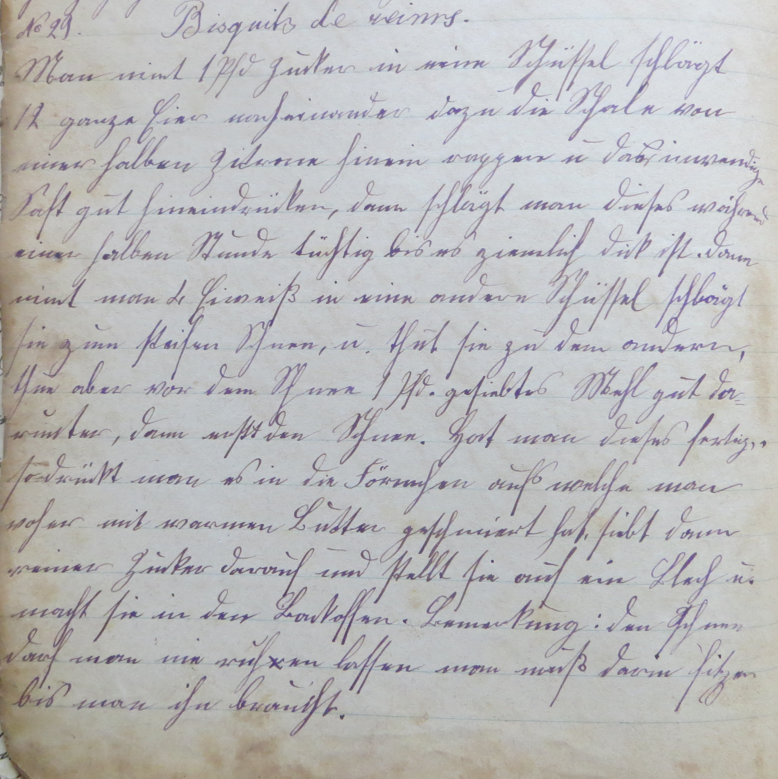 No 29. Bisquits de reims.
Man nimt 1 Pfd Zucker in eine Schüssel schlägt
12 ganze Eier nacheinander dazu die Schale von
einer halben Zitrone hinein rappen u das inwendige
Saft gut hineindrücken, dann schlägt man dieses während
einer halben Stunde tüchtig bis es ziemlich dick ist. dann
nimt man 4 Eiweiß in eine andere Schüssel schlägt
sie zum steifen Schnee, u. thut sie zu dem andern,
thue aber vor dem Schnee 1 Pfd. gesiebtes Mehl gut da-
runter, dann erst den Schnee. Hat man dieses fertig,
so drückt man es in die Förmchen aufs welche man
voher mit warmen Butter geschmiert hat, siebt dann
reiner Zucker darauf und stellt sie auf ein Blech u.
macht sie in den Backoffen. Bemerkung: den Schnee
darf man nie ruhen lassen man muß darin
bis man ihn braucht.